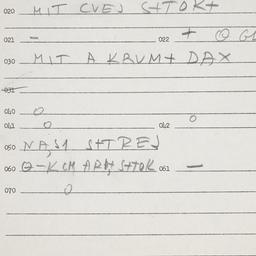 020 MIT CVEJ S+TOK+
021 - 022 + 0 GL
030 MIT A KRUM+ DAX
031
040 0
041 0 042 0
050 NA,S1 S+TREJ
060 0-KCM ARH S++OK 061 -
070 0